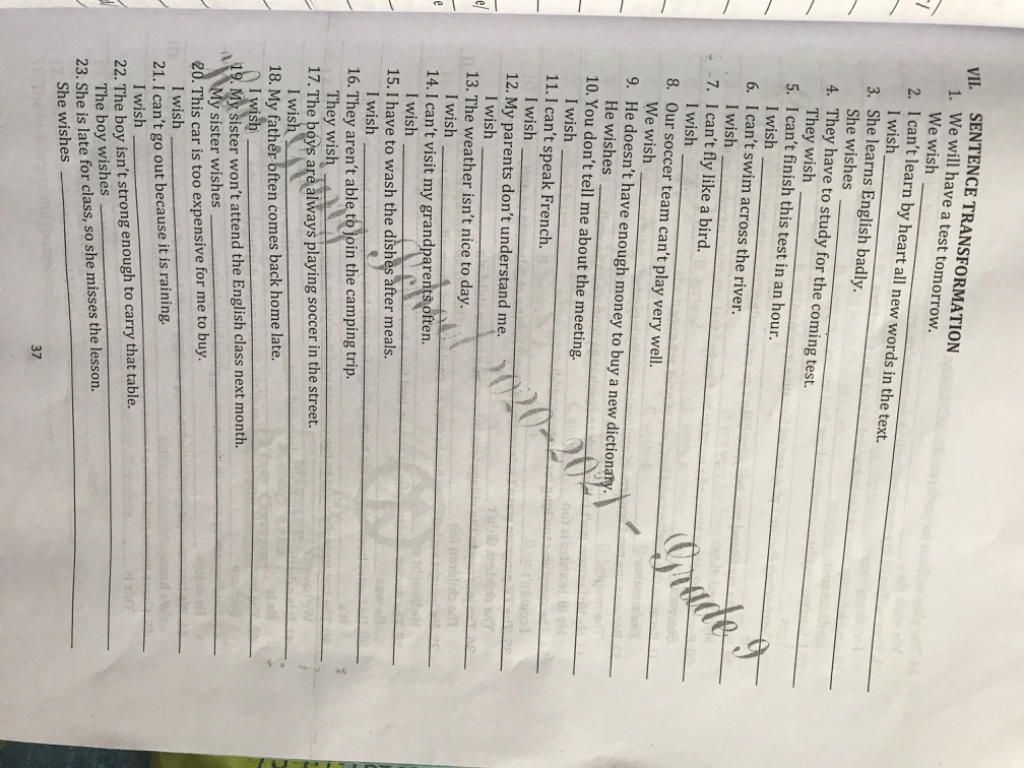 VII. SENTENCE TRANSFORMATION
1. We will have a test tomorrow.
We wish
2. I can't learn by heart all new words in the text.
I wish
3. She learns English badly.
She wishes
4. They have to study for the coming test.
They wish
5. I can't finish this test in an hour.
I wish
6. I can't swim across the river.
I wish
7. I can't fly like a bird.
I wish
8. Our soccer team can't play very well.
We wish
9. He doesn't have enough money to buy a new dictionary.
He wishes
10. You don't tell me about the meeting.
I wish
11. I can't speak French.
I wish
12. My parents don't understand me.
I wish
13. The weather isn't nice to day.
I wish
14. I can't visit my grandparents offen.
I wish
15. I have to wash the dishes after meals.
I wish
16. They aren't able to join the camping trip.
They wish
17. The boys are always playing soccer in the street.
I wish
18. My father often comes back home late.
I wish
19. My sister won't attend the English class next month.
My sister wishes
20. This car is too expensive for me to buy.
I wish
21. I can't go out because it is raining.
I wish
22. The boy isn't strong enough to carry that table.
The boy wishes
23. She is late for class, so she misses the lesson.
She wishes
37
School 2020-2021 - Grade 9